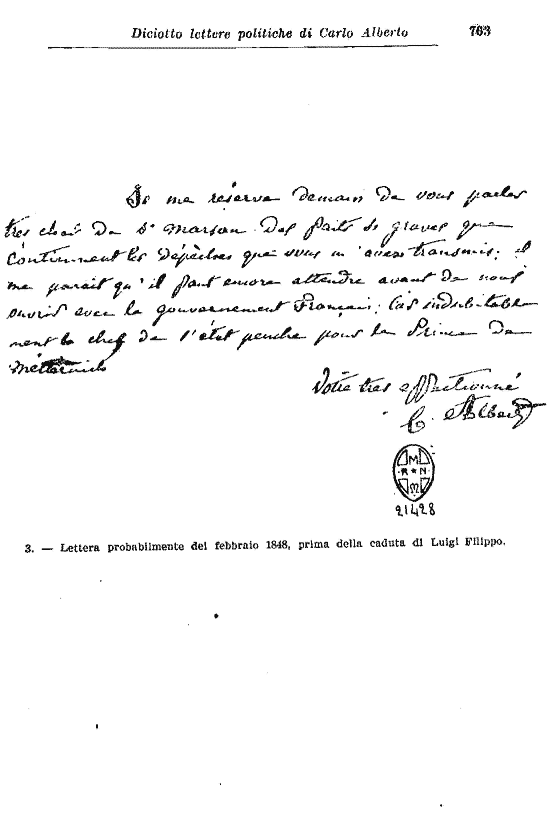 Diciotto lettere politiche di Carlo Alberto 763
Je me réserve demain de vous parler
très cher de St Marsan des faits si graves que
contiennent les dépêches que vous m'avez transmis; il
me parait qu'il faut encore attendre avant de nous
ouvrir avec le gouvernement Français; car indubitable
ment le chef de l'état penche pour le Prince de
Metternich
Votre très affectionné
C. Albert
M
R N
M
21428
3. — Lettera probabilmente del febbraio 1848, prima della caduta di Luigi Filippo.